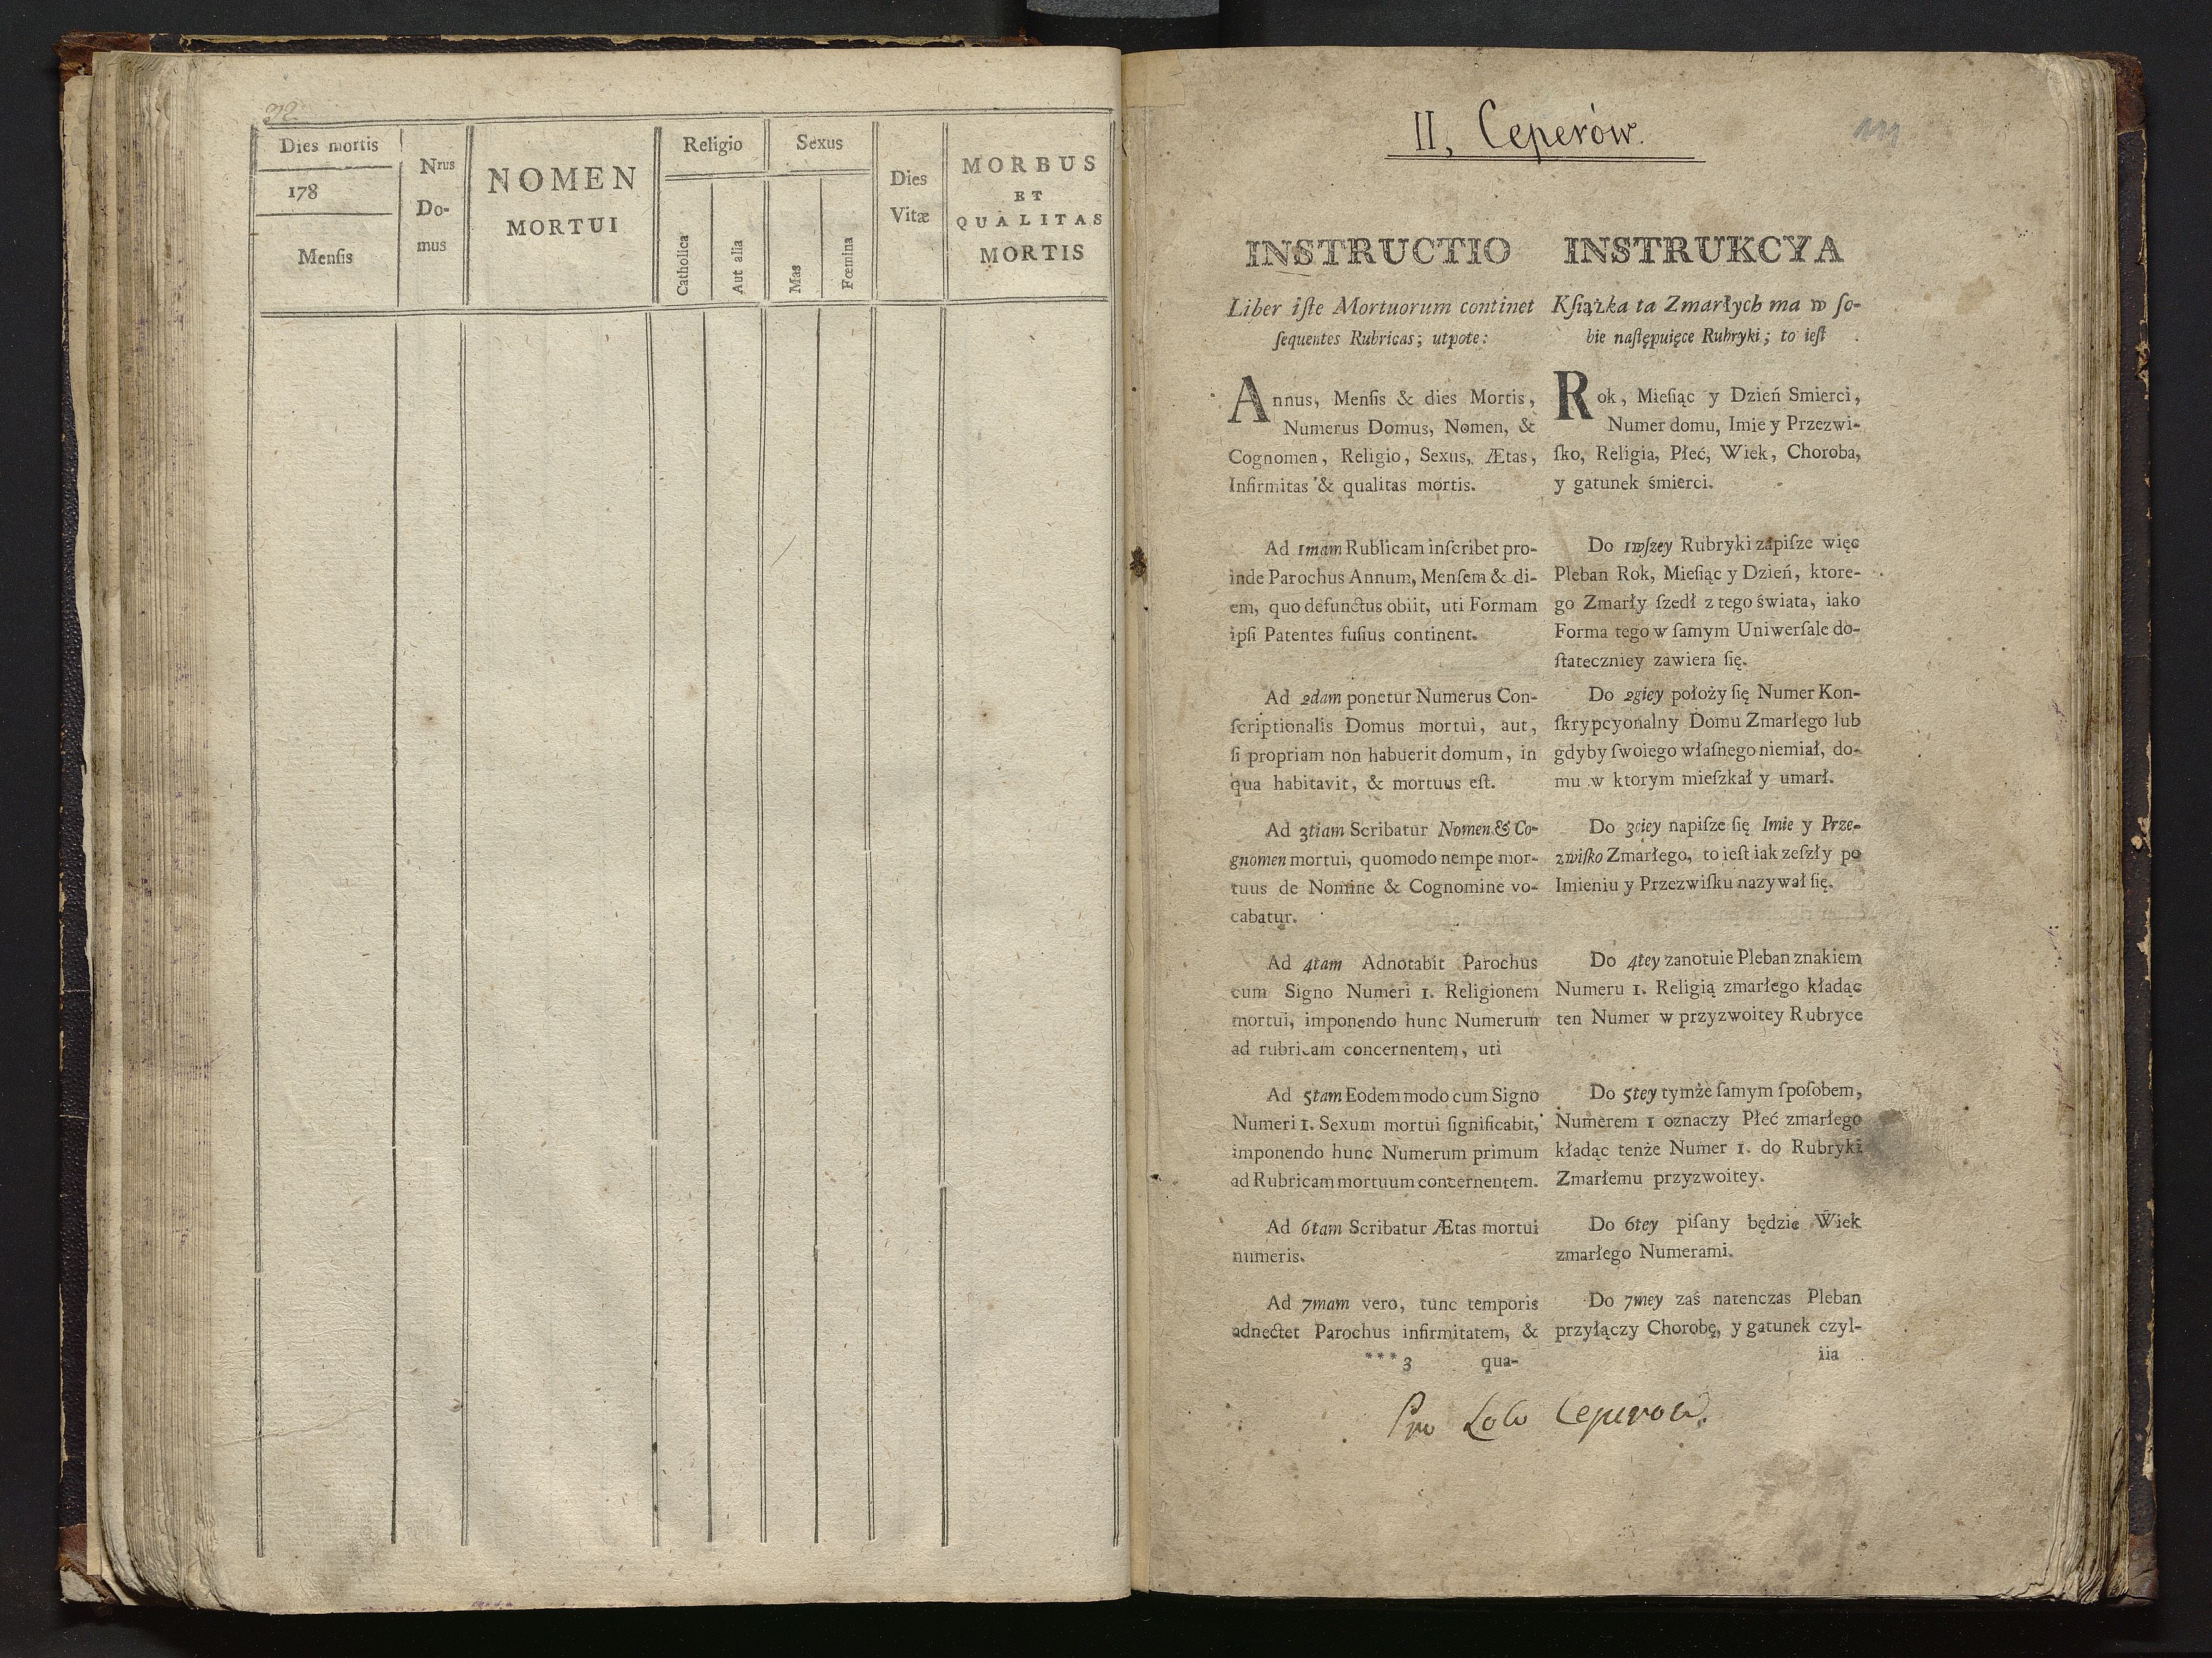 32
Dies mortis
178
Menſis
Nrus
Do-
mus
NOMEN
MORTUI
Religio
Catholica
Aut alia
Sexus
Mas
Fœmina
Dies
Vitæ
MORBUS
ET
QUALITAS
MORTIS
II, Ceperów.
INSTRUCTIO
Liber iſte Mortuorum continet
ſequentes Rubricas; utpote:
Annus, Menſis & dies Mortis,
Numerus Domus, Nomen, &
Cognomen, Religio, Sexus, Ætas,
Infirmitas & qualitas mortis.
Ad 1mam Rublicam inſcribet pro-
inde Parochus Annum, Menſem & di-
em, quo defunctus obiit, uti Formam
ipſi Patentes fuſius continent.
Ad 2dam ponetur Numerus Con-
ſcriptionalis Domus mortui, aut,
ſi propriam non habuerit domum, in
qua habitavit, & mortuus eſt.
Ad 3tiam Scribatur Nomen & Co-
gnomen mortui, quomodo nempe mor-
tuus de Nomine & Cognomine vo-
cabatur.
Ad 4tam Adnotabit Parochus
cum Signo Numeri 1. Religionem
mortui, imponendo hunc Numerum
ad rubricam concernentem, uti
Ad 5tam Eodem modo cum Signo
Numeri 1. Sexum mortui ſignificabit,
imponendo hunc Numerum primum
ad Rubricam mortuum concernentem.
Ad 6tam Scribatur Ætas mortui
numeris.
Ad 7mam vero, tunc temporis
adnectet Parochus infirmitatem, &
***3 qua-
INSTRUKCYA
Kſiążka ta Zmarłych ma w ſo-
bie naſtępuięce Rubryki; to ieſt
Rok, Mieſiąc y Dzień Smierci,
Numer domu, Imie y Przezwi-
ſko, Religia, Płeć, Wiek, Choroba,
y gatunek śmierci.
Do 1wſzey Rubryki zapiſze więc
Pleban Rok, Mieſiąc y Dzień, ktore-
go Zmarły ſzedł z tego świata, iako
Forma tego w ſamym Uniwerſale do-
ſtateczniey zawiera ſię.
Do 2giey położy ſię Numer Kon-
ſkrypcyonalny Domu Zmarłego lub
gdyby ſwoiego właſnego niemiał, do-
mu w ktorym mieſzkał y umarł.
Do 3ciey napiſze ſię Imie y Prze-
zwiſko Zmarłego, to ieſt iak zeſzły po
Imieniu y Przezwiſku nazywał ſię.
Do 4tey zanotuie Pleban znakiem
Numeru 1. Religią zmarłego kładąc
ten Numer w przyzwoitey Rubryce
Do 5tey tymże ſamym ſpoſobem,
Numerem 1 oznaczy Płeć zmarłego
kładąc tenże Numer 1. do Rubryki
Zmarłemu przyzwoitey.
Do 6tey piſany będzie Wiek
zmarłego Numerami.
Do 7mey zaś natenczas Pleban
przyłączy Chorobę, y gatunek czyl-
iia
Pro Loco Ceperow.